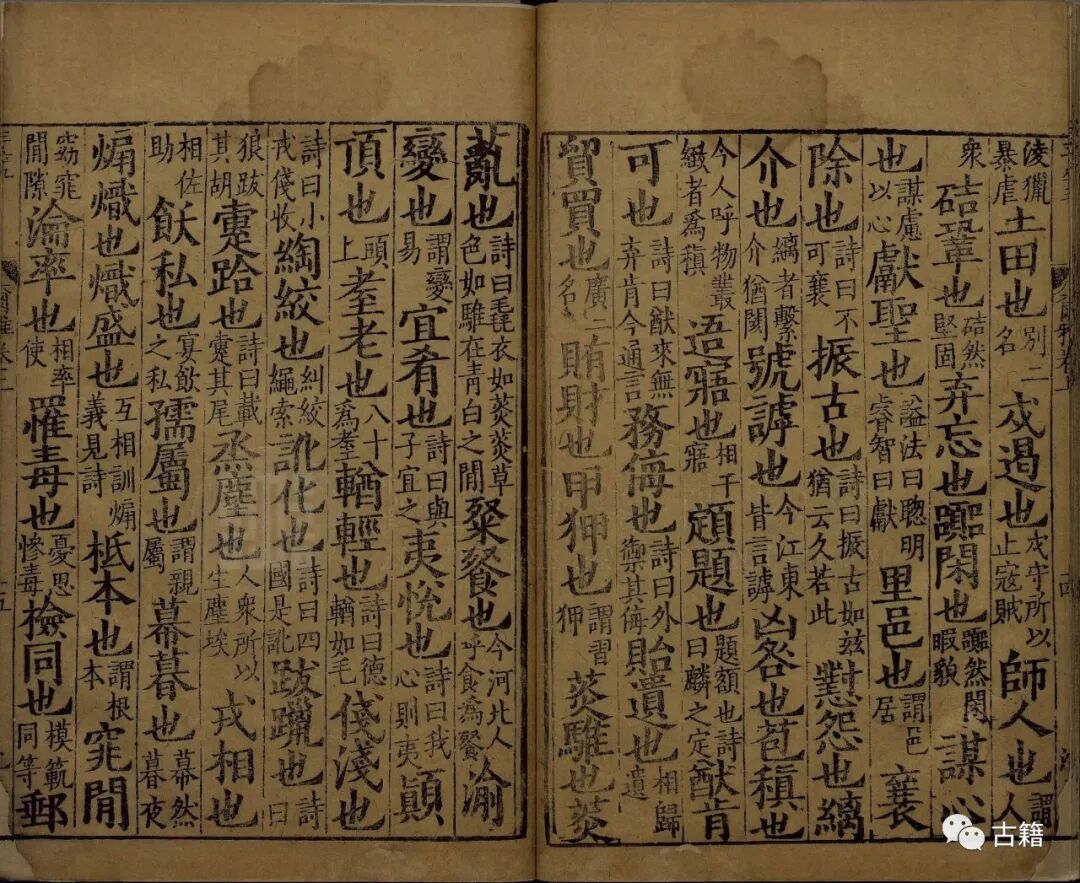 淩獵暴虐土田也別二名戍遏也戍守所以止寇賊師人也謂人
衆硈鞏也硈然堅固弃忘也嚻閑也嚻然閑暇貌謀心
也謀慮以心獻聖也謚法曰聰明睿智曰獻里邑也謂邑居襄
除也詩曰不可襄振古也詩曰振古如兹猶云久若此懟怨也縭
介也縭者繫介猶閡號謼也今江東皆言謼凶咎也苞稹也
今人呼物叢緻者爲稹逜寤也相干寤顁題也題額也詩曰麟之定猷肯
可也詩曰猷來無弃肯今通言務侮也詩曰外禦其侮貽遺也相歸遺
貿買也廣二名賄財也甲狎也謂習狎菼騅也菼
薍也詩曰毳衣如菼菼草色如騅在青白之閒粲餐也今河北人呼食為餐渝
變也謂變易宜肴也詩曰與子宜之夷悅也詩曰我心則夷顛
頂也頭上耋老也八十爲耋輶輕也詩曰德輶如毛俴淺也
詩曰小戎俴收綯絞也糾絞繩索訛化也詩曰四國是訛跋躐也詩曰
狼跋其胡疐跲也詩曰載疐其尾烝塵也人衆所以生塵埃戎相也
相佐助飫私也宴飲之私孺屬也謂親屬幕暮也幕然暮夜
煽熾也熾盛也互相訓煽義見詩柢本也謂根本窕閒
窈窕閒隙淪率也相率使罹毒也憂思慘毒檢同也模範同等郵
古籍